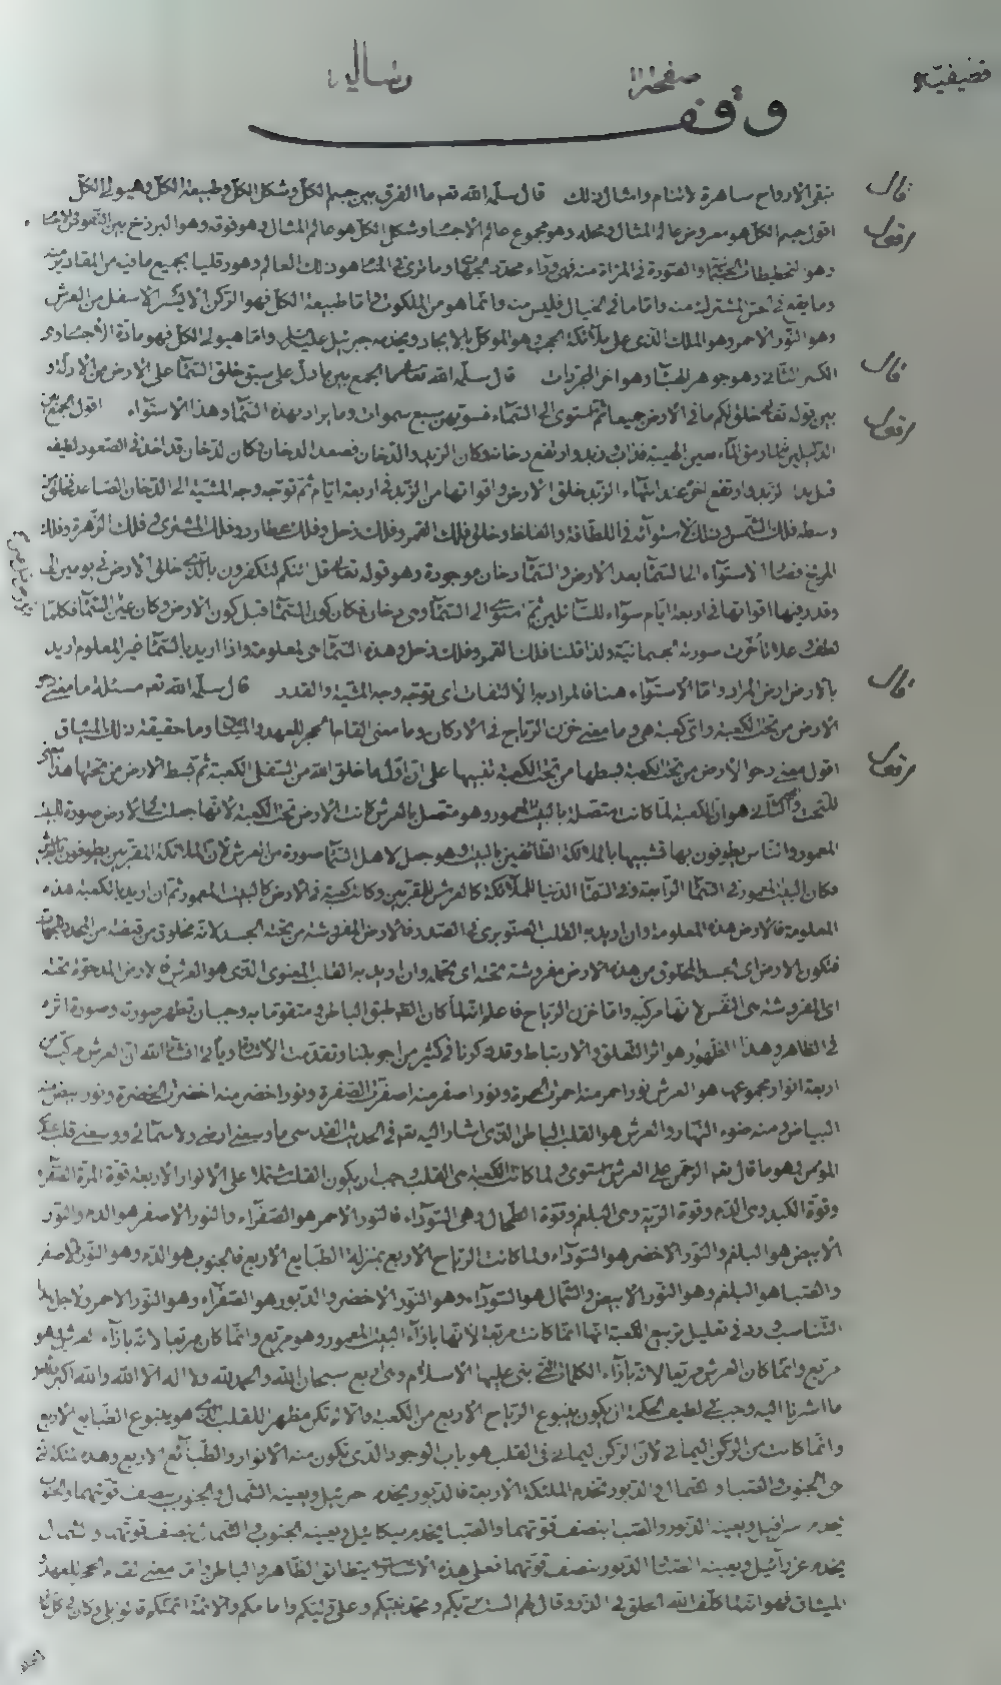 قضيفية
صفحة رسالة
وقف
قال
فتبقى الارواح ساهرة لا تنام وامثال ذلك قال سلّمه الله تعالى ما الفرق بين جسم الكلّ وشكل الكلّ وطبيعة الكلّ وهيولى الكلّ
اقول
اقول جسم الكلّ هو معروض عالم المثال ومحله وهو مجموع عالم الأجساد وشكل الكلّ هو عالم المثال وهو فوقه وهو البرزخ بين
والصورة في المرآة منه فهى وراء محدد الجهات وما ترى في المنام هو ذلك العالم وهو رقليا بجميع ما فيه من المقادير
وما يقع في الحسّ المشترك منه واما ما في الخيال فليس منه وانما هو من الملكوت واما طبيعة الكلّ فهو الركن الأيسر الاسفل من العرش
وهو النّور الاحمر وهو الملك الذى على ملائكة الحجب وهو الموكّل بالايجاد ويخدمه جبرئيل عليه السلم واما هيولى الكلّ فهو مادّة الأجساد و
قال
الكسر الثانى وهو جوهر الهبآء وهو اخر المجردات قال سلّمه الله تعالى ما الجمع بين ما دل على سبق خلق السّمآء على الارض من الادلة و
اقول
بين قوله تعالى خلق لكم ما في الارض جميعا ثم استوى الى السّمآء فسويهن سبع سموات وما يراد بهذه السّمآء وهذا الاستوآء اقول الجمع بين
الدليلين بعين الهيبة فذاب وزبد وارتفع دخانه وكان الزبد والدّخان فصعد الدخان وكان الدّخان قد اخذ في الصّعود لطيفه
قبل الزبد وارتفع اخره عند انتهآء الزبد خلق الارض واقواتها من الزبد في اربعة ايام ثم توجه وجه المشيّة الى الدّخان الصّاعد فخلق من
وسطه فلك الشّمس وذلك لاستوآئه في اللطافة والغلظ وخلق فلك القمر وفلك زحل وفلك عطارد وفلك المشترى وفلك الزّهرة وفلك
المريخ فصار الاستوآء الى السّمآء بعد الارض والسّمآء دخان موجودة وهو قوله تعالى قل ائنكم لتكفرون بالّذى خلق الارض في يومين الى
وقدر فيها اقواتها في اربعة ايّام سوآء للسّآئلين ثم استوى الى السّمآء وهى دخان فكان كون السّمآء قبل كون الارض وكان عين السّمآء فكلما
لطف وعلا تأخرت صورته الجسمانيّة ولذا قلنا فلك القمر وفلك زحل وهذه السّمآء هى المعلومة واذا اريد بالسّمآء غير المعلوم اريد
قال
بالارض ارض المراد واما الاستوآء هنا فالمراد به الالتفات اى توجّه وجه المشيّة والقدر قال سلّمه الله تعالى مسئلة ما معنى دحو
الارض من تحت الكعبة واى كعبة هى وما معنى خزن الرياح في الاركان وما معنى القام الحجر للعهد والميثاق وما حقيقة ذلك الميثاق
اقول
اقول معنى دحو الارض من تحت الكعبة بسطها من تحت الكعبة نفسها على ان اوّل ما خلق الله من السّفلى الكعبة ثم بسط الارض من تحتها هذا معنى
للتحت والثّانى هو ان الكعبة لمّا كانت متصلة بالبيت المعمور وهو متصل بالعرش كانت الارض تحت الكعبة لانّها جعلت في الارض صورة للبيت
المعمور والناس يطوفون بها تشبيها بالملآئكة الطّائفين بالبيت وهو جعل لاهل السّمآء صورة من العرش لان الملائكة المقربين يطوفون بالعرش
وكان البيت المعمور في السّمآء الرّابعة وفي السّمآء الدّنيا للملآئكة كالعرش للمقربين وكانت الكعبة في الارض كالبيت المعمور ثم ان اريد بالكعبة هذه
المعلومة فالارض هذه المعلومة وان اريد به القلب الصّنوبرى في الصّدر فالارض المفروشة من تحته الجسد لانّه مخلوق من قبضته من المحدد للجهات
فتكون الارض اى الجسد المخلوق من هذه الارض مفروشة تحته اى تحمله وان اريد به القلب المعنوى الّذى هو العرش فالارض المدحوّة تحته
اى المفروشة هى النّفس لانّها مركبه واما خزن الرّياح فاعلم انّه لمّا كان الظّاهر طبق الباطن ومتقوّما به وجب ان تظهر صورته وصورة اثره
في الظاهر وهذا الظّهور هو اثر التعلق والارتباط وقد ذكرنا في كثير من اجوبتنا وتقدّمت الاشارة ويأتى انشآء الله ان العرش مركّب من
اربعة انوار مجموعها هو العرش نور احمر منه احمرّت الحمرة ونور اصفر منه اصفرّت الصّفرة ونور اخضر منه اخضرّت الخضرة ونور ابيض منه
البياض ومنه ضوء النّهار والعرش هو القلب الباطن الّذى اشار اليه تعالى في الحديث القدسى ما وسعنى ارضى ولا سمآئى ووسعنى قلب عبدى
المؤمن وهو ما قال تعالى الرّحمن على العرش استوى ولما كانت الكعبة هى القلب وجب ان يكون القلب مشتملا على الانوار الاربعة قوّة المرّة الصّفرآء
وقوّة الكبد وهى الدّم وقوّة الرّية وهى البلغم وقوّة الطّحال وهى السّودآء فالنّور الاحمر هو الصّفرآء والنّور الاصفر هو الدم والنّور
الابيض هو البلغم والنّور الاخضر هو السّودآء ولما كانت الرّياح الاربع بمنزلة الطّبايع الاربع فالجنوب هو الدّم وهو النّور الاصفر
والصّبا هو البلغم وهو النّور الابيض والشّمال هو السّودآء وهو النّور الاخضر والدّبور هو الصّفرآء وهو النّور الاحمر ولاجل هذا
التّناسب ورد في تعليل تربيع الكعبة انّها انّما كانت مربّعة لانّها بازآء البيت المعمور وهو مربّع وانّما كان مربعا لانّه بازآء العرش وهو
مربّع وانّما كان العرش مربعا لانّه بازآء الكلمات الّتى بنى عليها الاسلام وهى اربع سبحان الله والحمد لله ولا اله الا الله والله اكبر
ما اشرنا اليه وجب في لطيف الحكمة ان يكون ينبوع الرّياح الاربع من الكعبة والا لم تكن مظهر القلب الّذى هو ينبوع الطّبايع الاربع
وانّما كانت من الرّكن اليمانى لانّ الرّكن اليمانى في القلب هو باب الوجود الّذى تكون منه الانوار والطّبآئع الاربع وهذه
هى الجنوب والصّبا والشّمال والدّبور تخدم الملئكة الاربعة فالدّبور يخدم جبرئيل ويعينه الشّمال والجنوب بنصف قوّتهما والجنوب
يخدم اسرافيل ويعينه الدّبور والصّبا بنصف قوّتهما والصّبا يخدم ميكائيل ويعينه الجنوب والشّمال بنصف قوّتهما والشّمال
يخدم عزرآئيل ويعينه الصّبا والدّبور بنصف قوّتهما فعلى هذه الاشارات يتطابق الظّاهر والباطن وامّا معنى القام الحجر للعهد و
الميثاق فهو انّه لمّا كلّف الله الخلق في الذّر وقال لهم الست بربّكم ومحمّد نبيّكم وعلى وليّكم وامامكم والائمّة ائمّتكم قالوا بلى وكان في كلّ